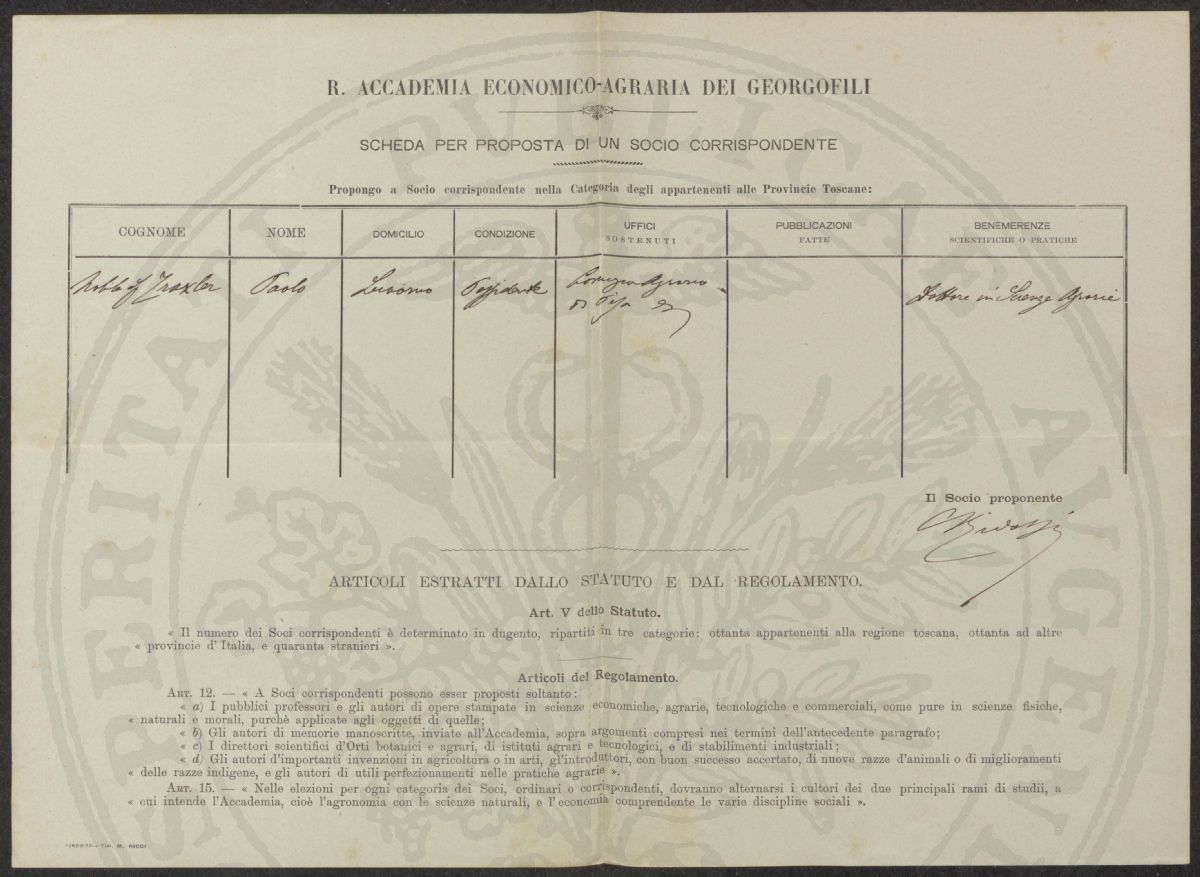 R. ACCADEMIA ECONOMICO-AGRARIA DEI GEORGOFILI
SCHEDA PER PROPOSTA DI UN SOCIO CORRISPONDENTE
Propongo a Socio corrispondente nella Categoria degli appartenenti alle Provincie Toscane:
COGNOME NOME DOMICILIO CONDIZIONE UFFICI SOSTENUTI PUBBLICAZIONI FATTE BENEMERENZE SCIENTIFICHE O PRATICHE
Traxler Paolo Livorno Possidente Agrario Dottore in Scienze Agrarie
di Pisa
Il Socio proponente
ARTICOLI ESTRATTI DALLO STATUTO E DAL REGOLAMENTO.
Art. V dello Statuto.
« Il numero dei Soci corrispondenti è determinato in dugento, ripartiti in tre categorie: ottanta appartenenti alla regione toscana, ottanta ad altre
« provincie d'Italia, e quaranta stranieri ».
Articoli del Regolamento.
ART. 12. — « A Soci corrispondenti possono esser proposti soltanto:
« a) I pubblici professori e gli autori di opere stampate in scienze economiche, agrarie, tecnologiche e commerciali, come pure in scienze fisiche,
« naturali e morali, purchè applicate agli oggetti di quelle;
« b) Gli autori di memorie manoscritte, inviate all'Accademia, sopra argomenti compresi nei termini dell'antecedente paragrafo;
« c) I direttori scientifici d'Orti botanici e agrari, di istituti agrari e tecnologici, e di stabilimenti industriali;
« d) Gli autori d'importanti invenzioni in agricoltura o in arti, gl'introduttori, con buon successo accertato, di nuove razze d'animali o di miglioramenti
« delle razze indigene, e gli autori di utili perfezionamenti nelle pratiche agrarie ».
ART. 15. — « Nelle elezioni per ogni categoria dei Soci, ordinari o corrispondenti, dovranno alternarsi i cultori dei due principali rami di studii, a
« cui intende l'Accademia, cioè l'agronomia con le scienze naturali, e l'economia comprendente le varie discipline sociali ».
FIRENZE - TIP. M. RICCI